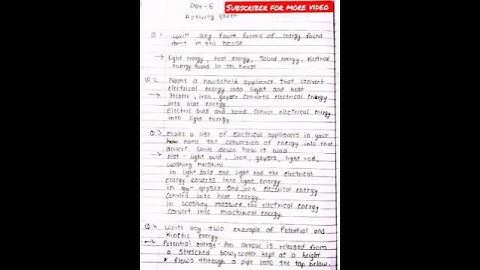 SUBSCRIBER FOR MORE VIDEO
Day - 6
Activity Sheet
Q.1 Write any four forms of energy found
in the house
→ light energy, heat energy, Sound energy, electrical
energy found in the house
Q.2 Name a household appliance that convert
electrical energy into light and heat
→ Heater, iron, geyser converts electrical energy
into heat energy
Electric bulb and convert electrical energy
into light energy
Q.3 Make a list of electrical appliances in your
name the conversion of energy into that
device? Write down how it was
→ light bulb, iron, geyser, light rod,
washing machine
In light bulb and light rod the electrical
energy converts into light energy
In geyser and iron electrical energy
convert into heat energy
In washing machine the electrical energy
convert into mechanical energy.
Q.4 Write any two example of Potential and
kinetic energy.
→ Potential energy - An arrow is released from
a stretched bow, water kept at a height
flows through a pipe into the tap below.